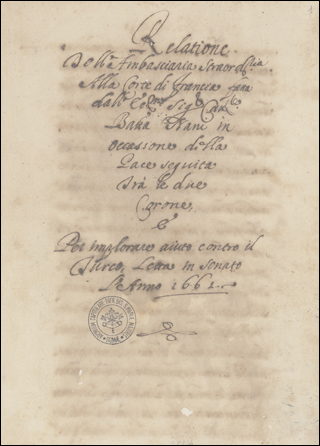 Relatione
Dell'Ambasciaria Straordria
Alla Corte di Francia fatta
dall' Sigr
Batta Nani in
occasione della
Pace seguita
Trà le due
Corone,
e
Per implorare aiuto contro il
Turco, Letta in Senato
L'Anno 1661.